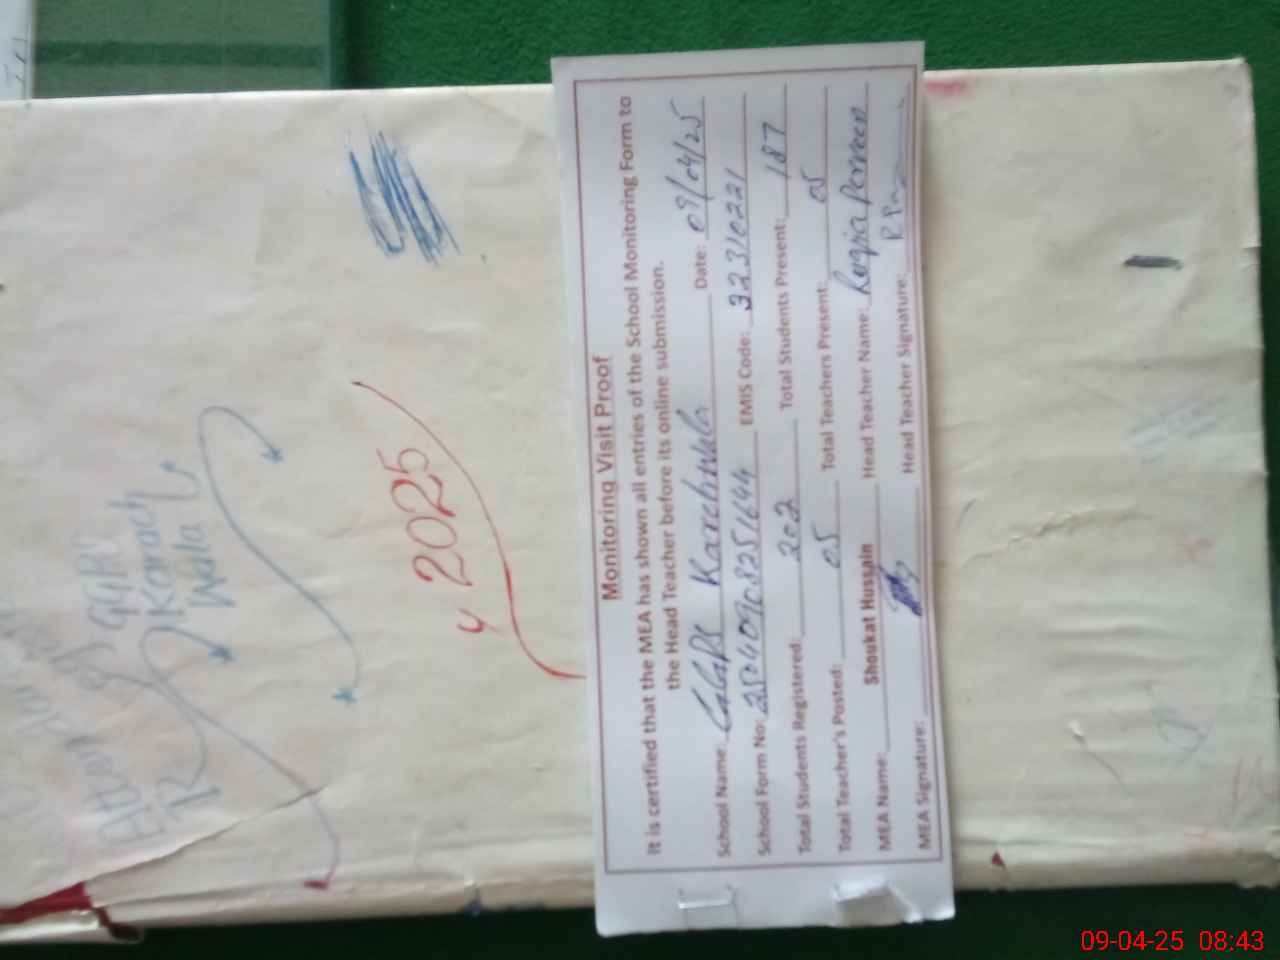 Monitoring Visit Proof
It is certified that the MEA has shown all entries of the School Monitoring Form to
the Head Teacher before its online submission.
School Name: GGPS Karachwala Date: 09/04/25
School Form No: EMIS Code: 32310221
Total Students Registered: 202 Total Students Present: 187
Total Teacher's Posted: 05 Total Teachers Present: 05
MEA Name: Shoukat Hussain Head Teacher Name: Ruqia Perveen
MEA Signature: Head Teacher Signature:
of GGPS
Karach
Wala
4 2025
09-04-25 08:43